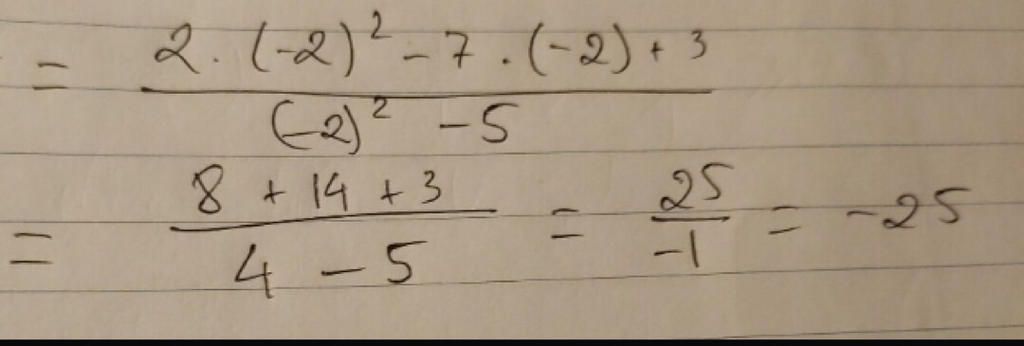 = (2 · (-2)² - 7 · (-2) + 3) / ((-2)² - 5)
= (8 + 14 + 3) / (4 - 5) = 25 / -1 = -25